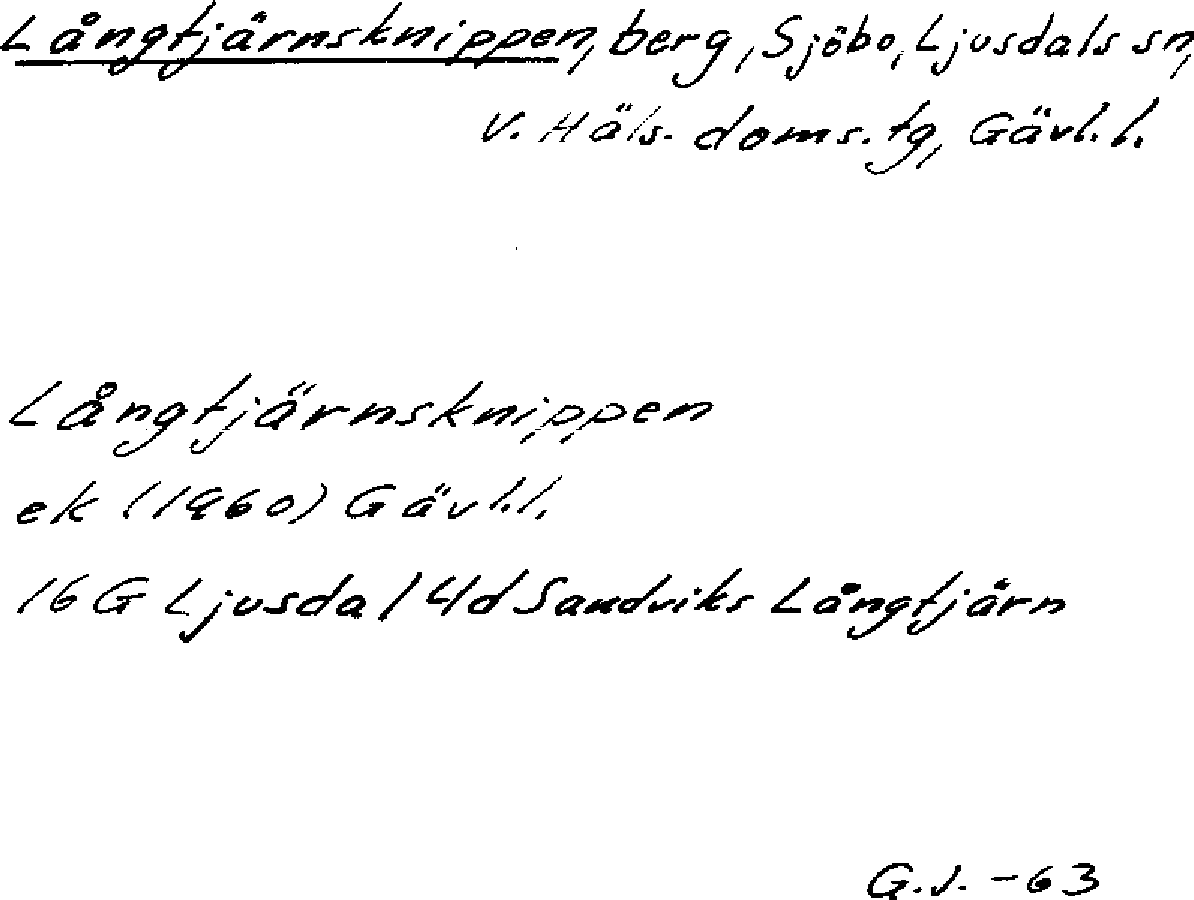 Långtjärnsknippen, berg, Sjöbo, Ljusdals sn,
V. Häls. doms. tg, Gävl. l.
Långtjärnsknippen
ek (1960) Gävl. l.
16 G Ljusdal 4d Sandviks Långtjärn
G.J. -63